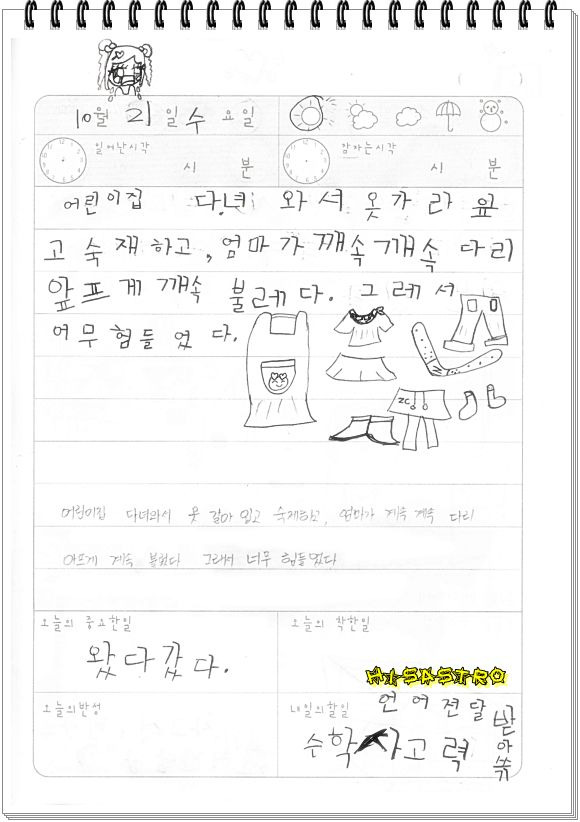 10월 21일 수요일
일어난시각
시 분
잠자는시각
시 분
어린이집 다녀 와서 옷가라 입
고 숙재하고, 엄마가 깨속 깨속 다리
앞프게 깨속 불레다. 그레서
어무 험들었다.
ZC
어린이집 다녀와서 옷 갈아 입고 숙제하고, 엄마가 계속 계속 다리
아프게 계속 불렀다 그래서 너무 힘들었다
오늘의 중요한일
왔다갔다.
오늘의 착한일
HISASTRO
오늘의반성
내일의할일
언어전달 받아쓰
수학 사고력